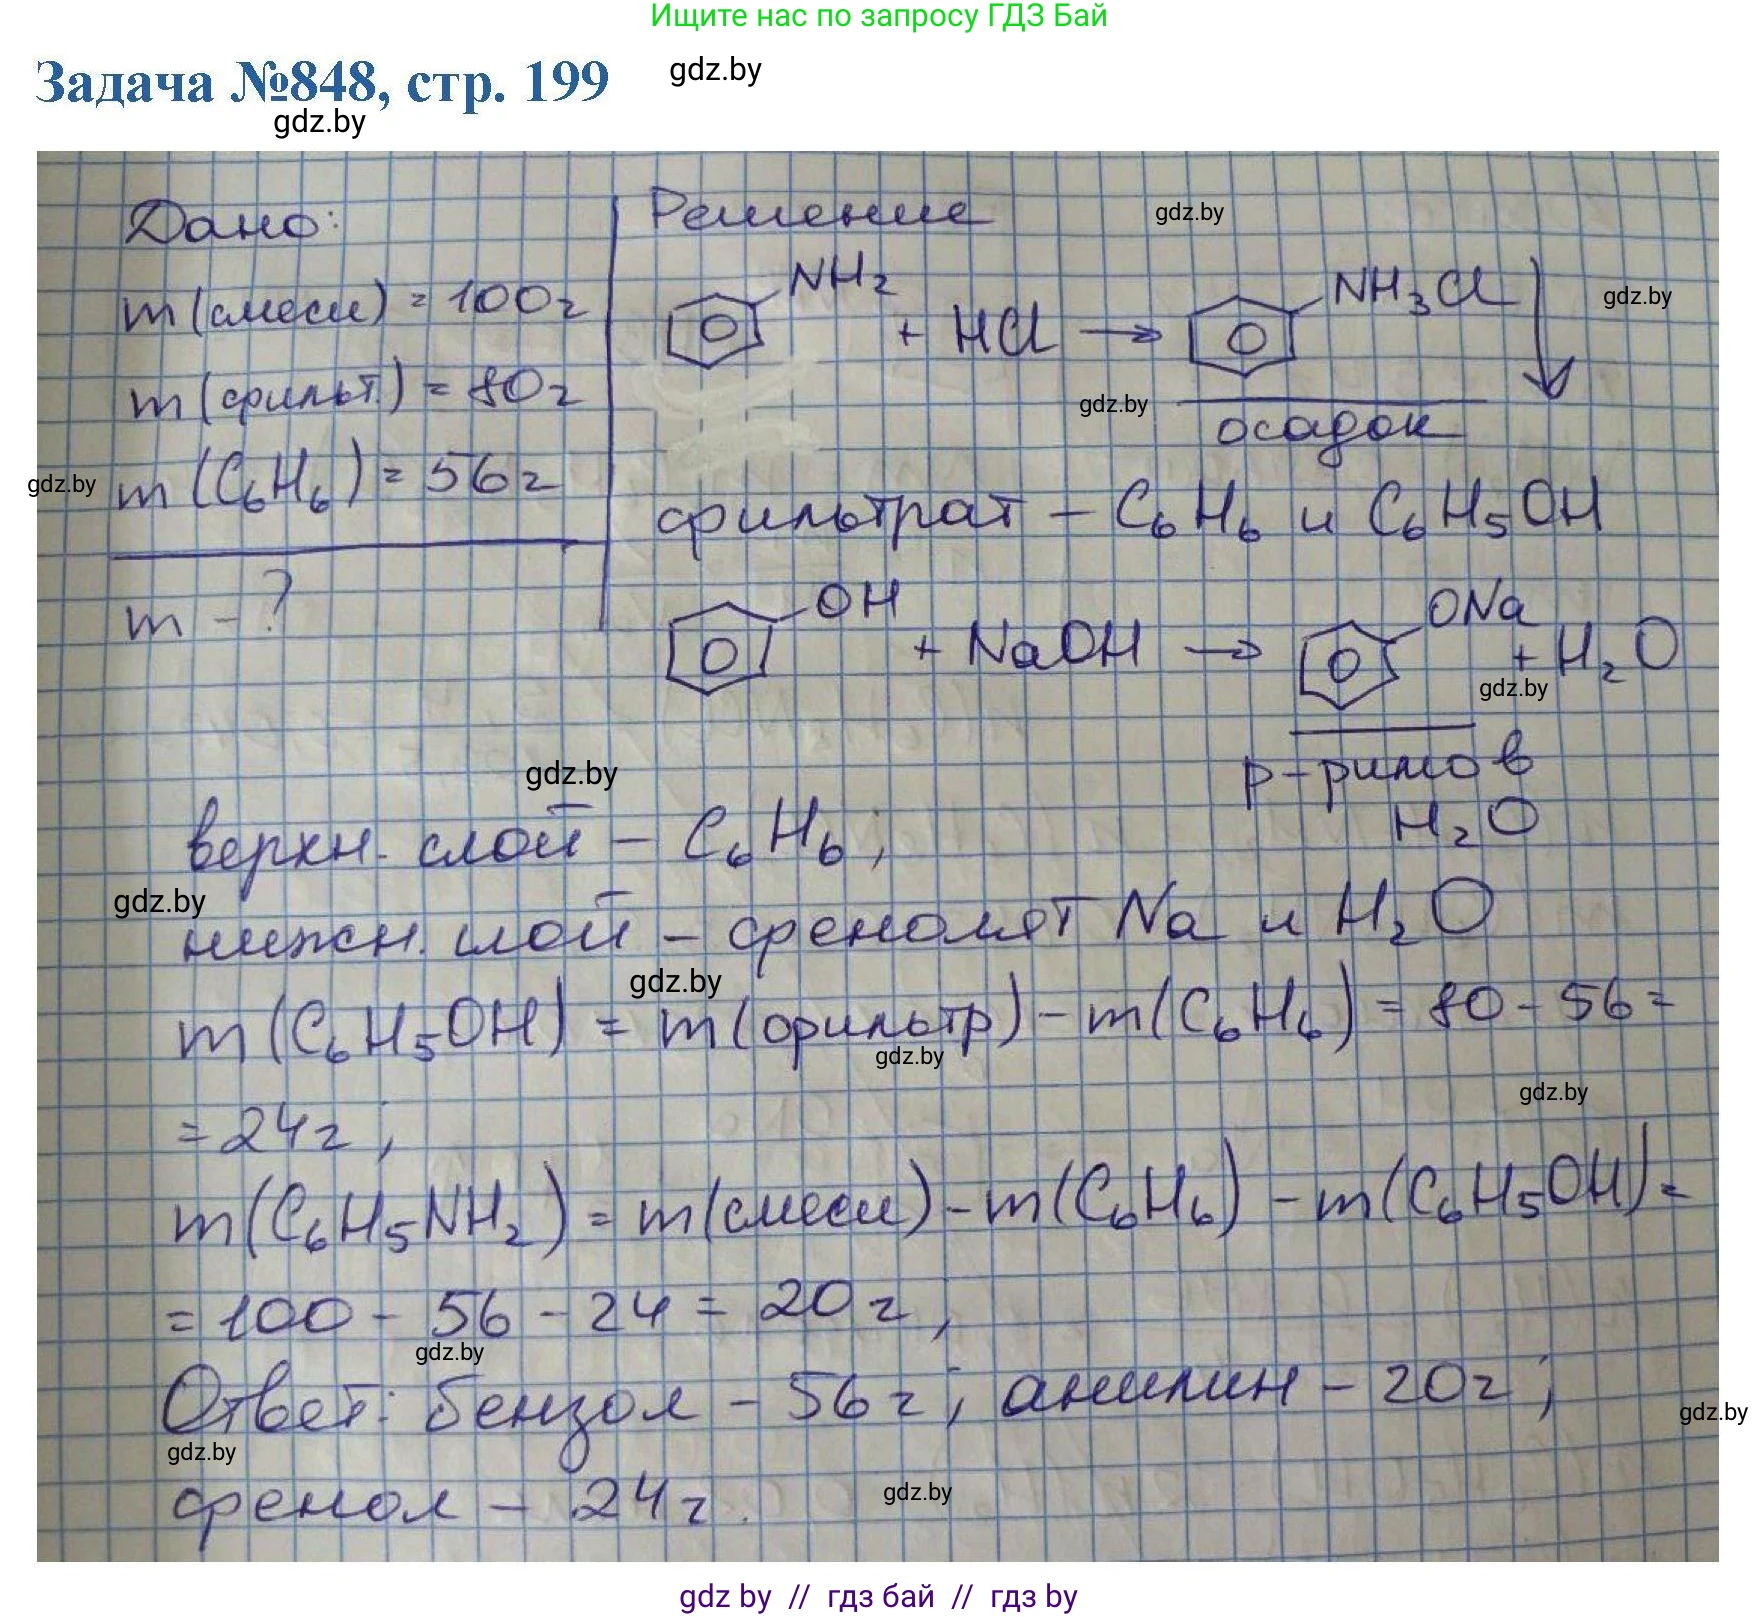 Ищите нас по запросу ГДЗ Бай
Задача №848, стр. 199
gdz.by
gdz.by
Дано:
m (смеси) = 100г
m (фильт.) = 80г
m (C₆H₆) = 56г
gdz.by
m - ?
Решение
gdz.by
NH₂ + HCl → NH₃Cl ↓
gdz.by
gdz.by
осадок
фильтрат – C₆H₆ и C₆H₅OH
OH + NaOH → ONa + H₂O
gdz.by
р-римо в
H₂O
gdz.by
верхн. слой – C₆H₆;
gdz.by
нижн. слой – фенолят Na и H₂O
gdz.by
m (C₆H₅OH) = m (фильтр) - m (C₆H₆) = 80 - 56 =
gdz.by
gdz.by
= 24г;
m (C₆H₅NH₂) = m (смеси) - m (C₆H₆) - m (C₆H₅OH) =
= 100 - 56 - 24 = 20г;
gdz.by
Ответ: бензол – 56г; анилин – 20г;
gdz.by
gdz.by
фенол – 24г.
gdz.by
gdz by // гдз бай // gdz by